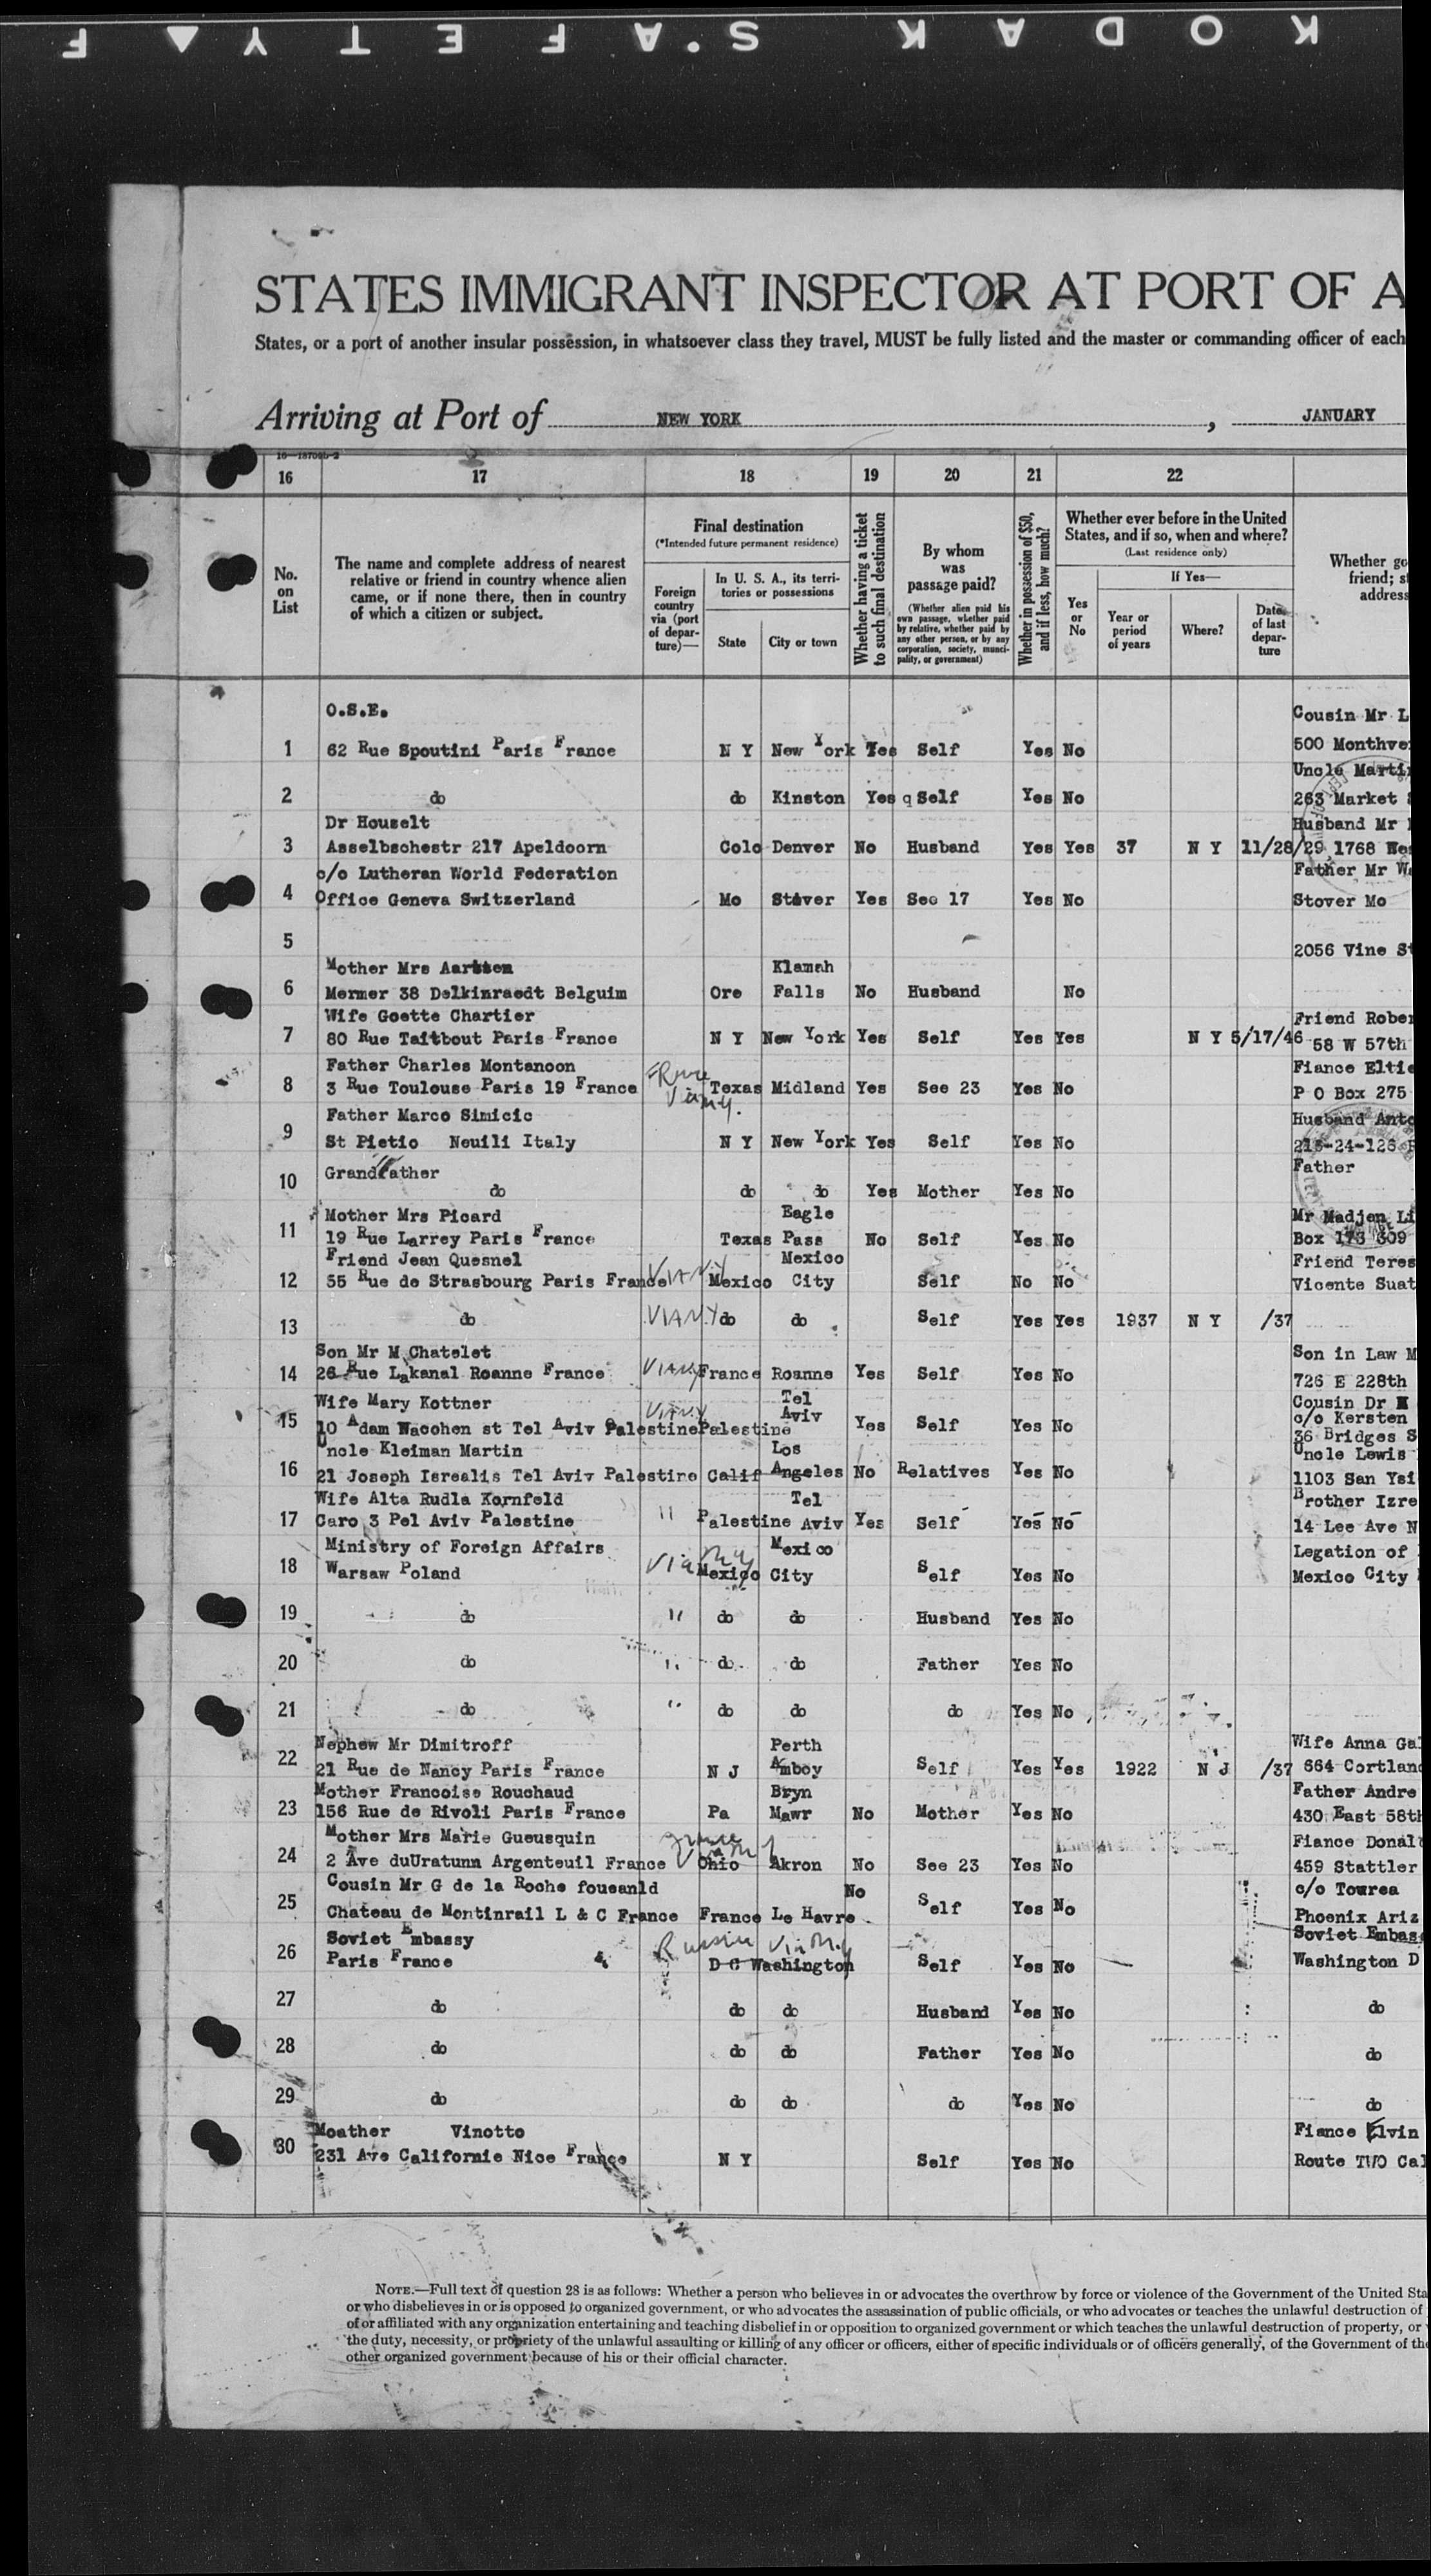 KODAK S'AFETY F
STATES IMMIGRANT INSPECTOR AT PORT OF A
States, or a port of another insular possession, in whatsoever class they travel, MUST be fully listed and the master or commanding officer of each
Arriving at Port of NEW YORK , JANUARY
16 17 18 19 20 21 22
No. on List
The name and complete address of nearest relative or friend in country whence alien came, or if none there, then in country of which a citizen or subject.
Final destination
(*Intended future permanent residence)
Foreign country via (port of departure)—
In U. S. A., its territories or possessions
State City or town
Whether having a ticket to such final destination
By whom was passage paid?
(Whether alien paid his own passage, whether paid by relative, whether paid by any other person, or by any corporation, society, municipality, or government)
Whether in possession of $50, and if less, how much?
Whether ever before in the United States, and if so, when and where?
(Last residence only)
Yes or No
If Yes—
Year or period of years
Where?
Date of last departure
Whether go
friend; s
address
O.S.E. Cousin Mr L
1 62 Rue Spoutini Paris France N Y New York Yes Self Yes No 500 Monthve
Uncle Marti
2 do do Kinston Yes q Self Yes No 263 Market
Dr Houselt Husband Mr
3 Asselbschestr 217 Apeldoorn Colo Denver No Husband Yes Yes 37 N Y 11/28/29 1768 Wes
c/o Lutheran World Federation Father Mr W
4 Office Geneva Switzerland Mo Stover Yes See 17 Yes No Stover Mo
5 2056 Vine St
Mother Mrs Aartsen Klamah
6 Mermer 38 Delkinraedt Belguim Ore Falls No Husband No
Wife Goette Chartier Friend Rober
7 80 Rue Taitbout Paris France N Y New York Yes Self Yes Yes N Y 5/17/46 58 W 57th
Father Charles Montanoon Fiance Eltie
8 3 Rue Toulouse Paris 19 France France Via N.Y. Texas Midland Yes See 23 Yes No P O Box 275
Father Marco Simicic Husband Anto
9 St Pietio Neuili Italy N Y New York Yes Self Yes No 215-24-126
Grandfather Father
10 do do do Yes Mother Yes No
Mother Mrs Picard Eagle Mr Madjen Li
11 19 Rue Larrey Paris France Texas Pass No Self Yes No Box 173 309
Friend Jean Quesnel Mexico Friend Teres
12 55 Rue de Strasbourg Paris France VIA N.Y Mexico City Self No No Vicente Suat
13 do VIA N.Y do do Self Yes Yes 1937 N Y /37
Son Mr M Chatelet Son in Law M
14 26 Rue Lakanal Roanne France VIA N.Y France Roanne Yes Self Yes No 726 E 228th
Wife Mary Kottner VIA N.Y Tel Aviv Cousin Dr
15 10 Adam Hacohen st Tel Aviv Palestine Palestine Yes Self Yes No c/o Kersten
36 Bridges S
Uncle Kleiman Martin Los Uncle Lewis
16 21 Joseph Isrealis Tel Aviv Palestine Calif Angeles No Relatives Yes No 1103 San Ysi
Wife Alta Rudla Kornfeld Tel Brother Izre
17 Caro 3 Pel Aviv Palestine " Palestine Aviv Yes Self Yes No 14 Lee Ave N
Ministry of Foreign Affairs Mexico Legation of
18 Warsaw Poland Via N.Y Mexico City Self Yes No Mexico City
19 do " do do Husband Yes No
20 do " do do Father Yes No
21 do " do do do Yes No
Nephew Mr Dimitroff Perth Wife Anna Ga
22 21 Rue de Nancy Paris France N J Amboy Self Yes Yes 1922 N J /37 664 Cortland
Mother Francoise Rouchaud Bryn Father Andre
23 156 Rue de Rivoli Paris France Pa Mawr No Mother Yes No 430 East 58th
Mother Mrs Marie Gueusquin France Via N.Y Fiance Donal
24 2 Ave duUratunn Argenteuil France Ohio Akron No See 23 Yes No 459 Stattler
Cousin Mr G de la Roche foueanld No c/o Tourea
25 Chateau de Montinrail L & C France France Le Havre Self Yes No Phoenix Ariz
Soviet Embassy Russia Via N.Y Soviet Embas
26 Paris France D C Washington Self Yes No Washington D
27 do do do Husband Yes No do
28 do do do Father Yes No do
29 do do do do Yes No do
Moather Vinotto Fiance Elvin
30 231 Ave Californie Nice France N Y Self Yes No Route TWO Cal
NOTE.—Full text of question 28 is as follows: Whether a person who believes in or advocates the overthrow by force or violence of the Government of the United Sta
or who disbelieves in or is opposed to organized government, or who advocates the assassination of public officials, or who advocates or teaches the unlawful destruction of
of or affiliated with any organization entertaining and teaching disbelief in or opposition to organized government or which teaches the unlawful destruction of property, or
the duty, necessity, or propriety of the unlawful assaulting or killing of any officer or officers, either of specific individuals or of officers generally, of the Government of the
other organized government because of his or their official character.